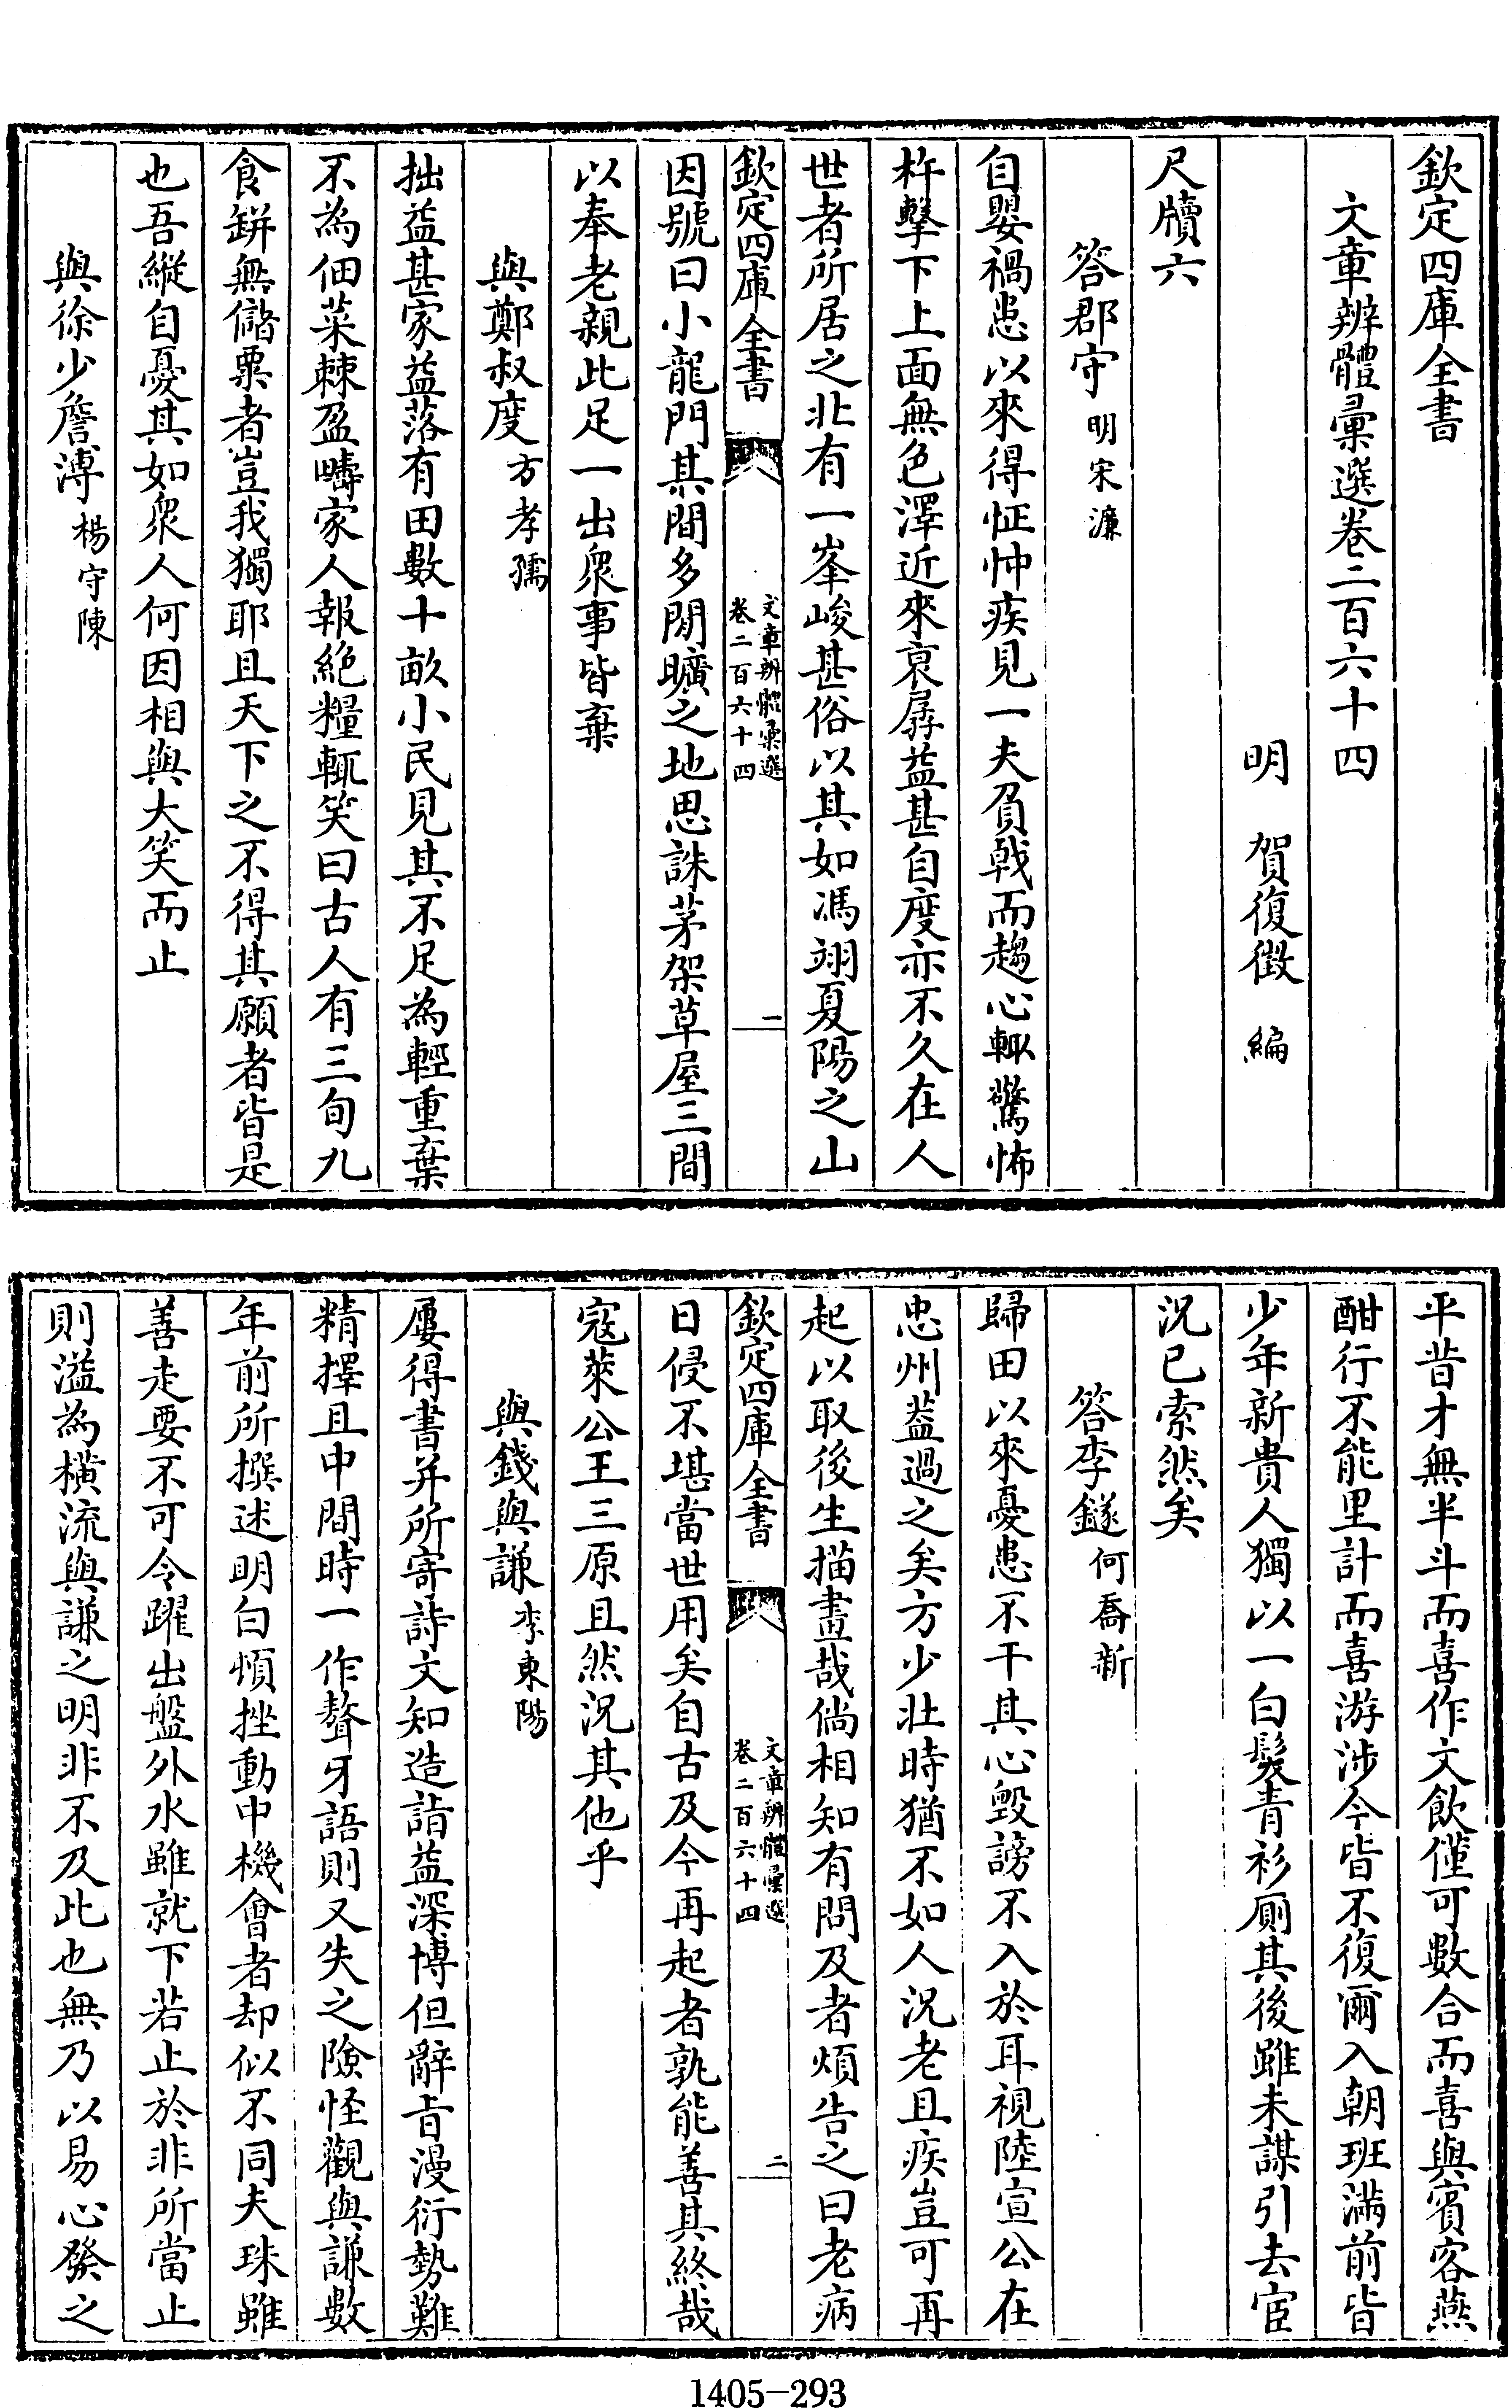 欽定四庫全書
文章辨體彙選卷二百六十四
明　賀復徵　編
尺牘六
答郡守 明宋濂
自嬰禍患以來得怔忡疾見一夫負戟而趨心輒驚怖
杵擊下上面無色澤近來哀孱益甚自度亦不久在人
世者所居之北有一峯峻甚俗以其如馮翊夏陽之山
欽定四庫全書
文章辨體彙選
卷二百六十四
一
因號曰小龍門其間多閒曠之地思誅茅架草屋三間
以奉老親此足一出衆事皆棄
與鄭叔度 方孝孺
拙益甚家益落有田數十畝小民見其不足為輕重棄
不為佃菜棘盈疇家人報絶糧輒笑曰古人有三旬九
食缾無儲粟者豈我獨耶且天下之不得其願者皆是
也吾縱自憂其如衆人何因相與大笑而止
與徐少詹溥 楊守陳
平昔才無半斗而喜作文飲僅可數合而喜與賓客燕
酣行不能里計而喜游涉今皆不復爾入朝班滿前皆
少年新貴人獨以一白髮青衫厠其後雖未謀引去宦
況已索然矣
答李鐩 何喬新
歸田以來憂患不干其心毀謗不入於耳視陸宣公在
忠州葢過之矣方少壯時猶不如人況老且疾豈可再
起以取後生描畫哉倘相知有問及者煩告之曰老病
欽定四庫全書
文章辨體彙選
卷二百六十四
二
日侵不堪當世用矣自古及今再起者孰能善其終哉
寇萊公王三原且然況其他乎
與錢與謙 李東陽
屢得書并所寄詩文知造詣益深博但辭旨漫衍勢難
精擇且中間時一作聱牙語則又失之險怪觀與謙數
年前所撰述明白頓挫動中機會者却似不同夫珠雖
善走要不可令躍出盤外水雖就下若止於非所當止
則溢為橫流與謙之明非不及此也無乃以易心發之
1405-293